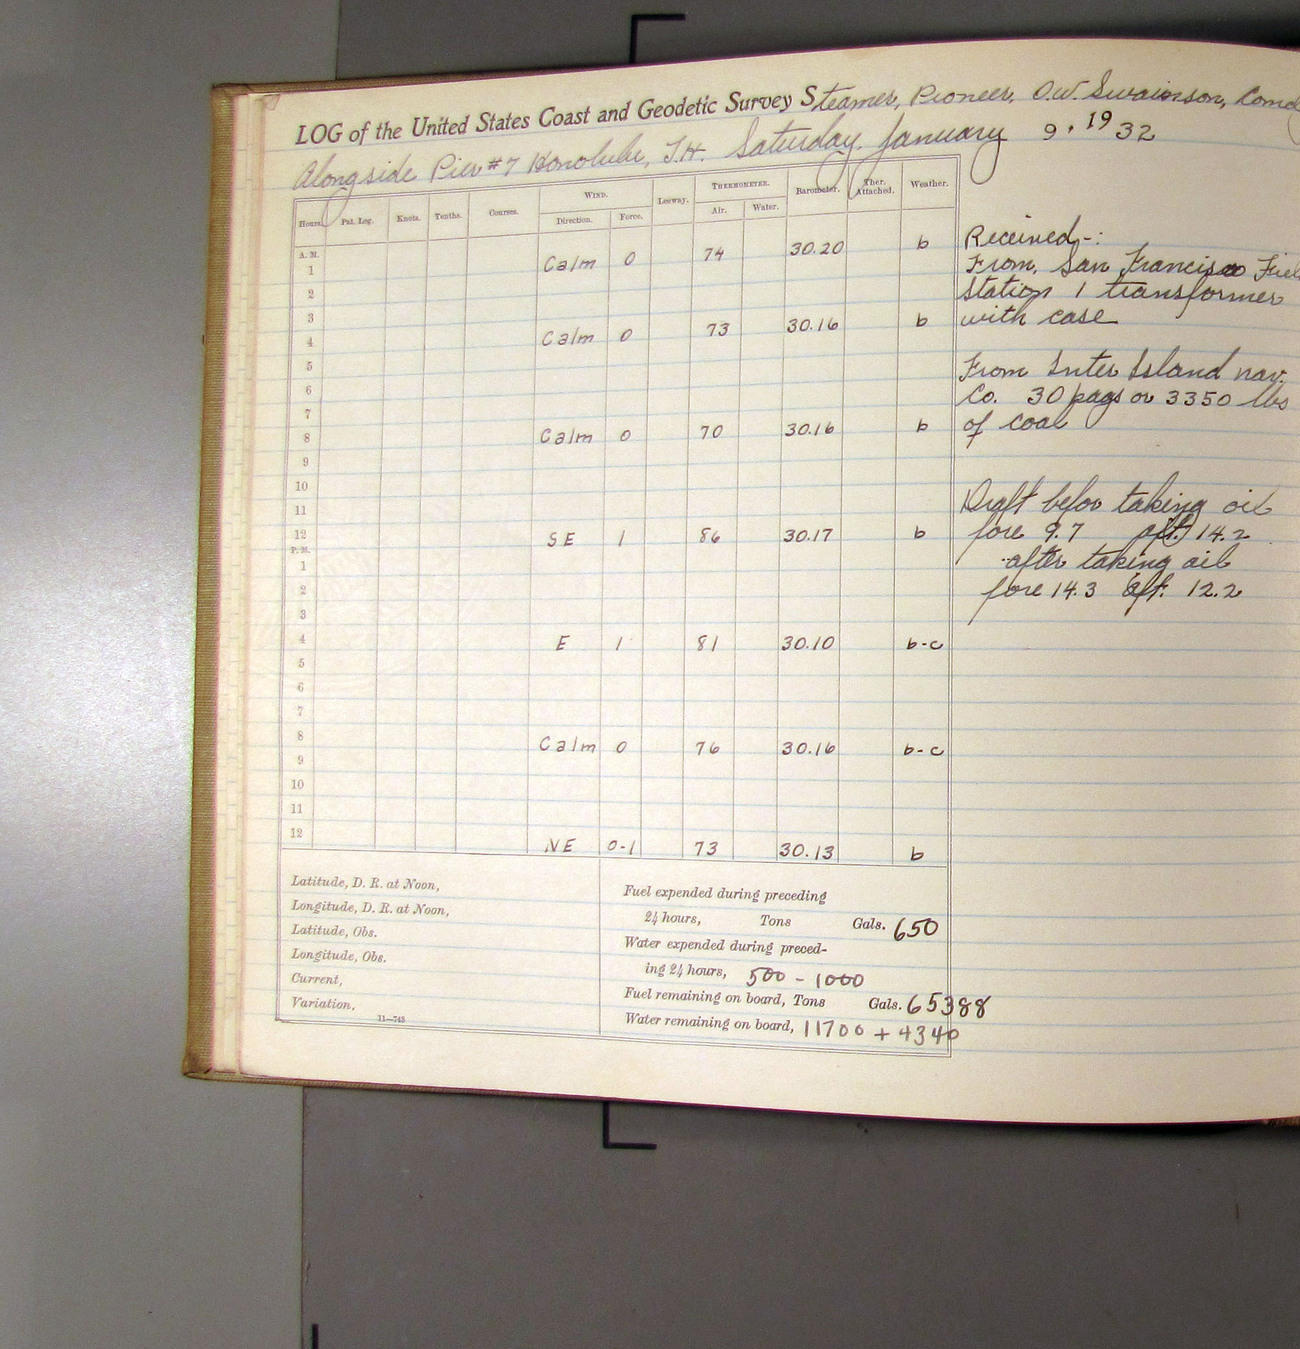 LOG of the United States Coast and Geodetic Survey Steamer, Pioneer, O.W. Swainson, Comd
Alongside Pier #7 Honolulu, T.H. Saturday. January 9, 1932
Hours. Pat. Log. Knots. Tenths. Courses. WIND. Leeway. THERMOMETER. Barometer. Ther. Attached. Weather.
Direction. Force. Air. Water.
A. M.
Calm 0 74 30.20 b
1
2
3
Calm 0 73 30.16 b
4
5
6
7
8 Calm 0 70 30.16 b
9
10
11
12 SE 1 86 30.17 b
P. M.
1
2
3
4 E 1 81 30.10 b-c
5
6
7
8 Calm 0 76 30.16 b-c
9
10
11
12 NE 0-1 73 30.13 b
Received-:
From, San Francisco Fiel
Station 1 transformer
with case
From Inter Island nav.
Co. 30 bags or 3350 lbs
of coal
Draft befor taking oil
fore 9.7 aft. 14.2
after taking oil
fore 14.3 aft. 12.2
Latitude, D. R. at Noon,
Longitude, D. R. at Noon,
Latitude, Obs.
Longitude, Obs.
Current,
Variation,
11—743
Fuel expended during preceding
24 hours, Tons Gals. 650
Water expended during preced-
ing 24 hours, 500 - 1000
Fuel remaining on board, Tons Gals. 65388
Water remaining on board, 11700 + 4340